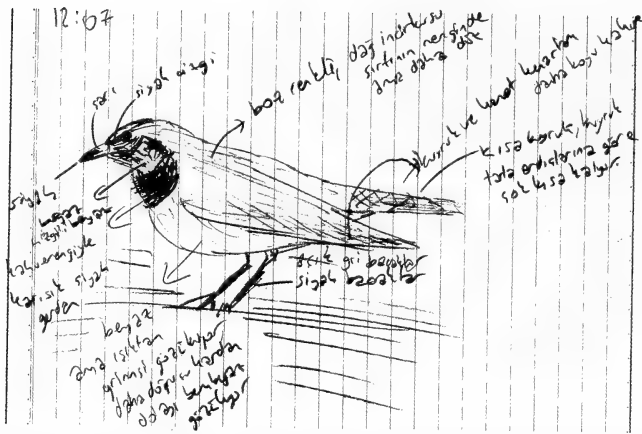 12:07
sarı
siyah çizgi
boz renkli, dağ incirkuşu
sırtının renginde
ama daha düz
kuyruk ve kanat kenarları
daha koyu kahve
kısa kuyruk, kuyruk
tarla ardıçlarına göre
çok kısa kalıyor.
siyah
beyaz
beyaz
kahverengiyle
karışık siyah
gerdan
açık gri bacaklar
siyah bacaklar
beyaz
ama ışıktan
grimsi gözüküyor
daha doğrusu kardan
dolayı bembeyaz
gözüküyor